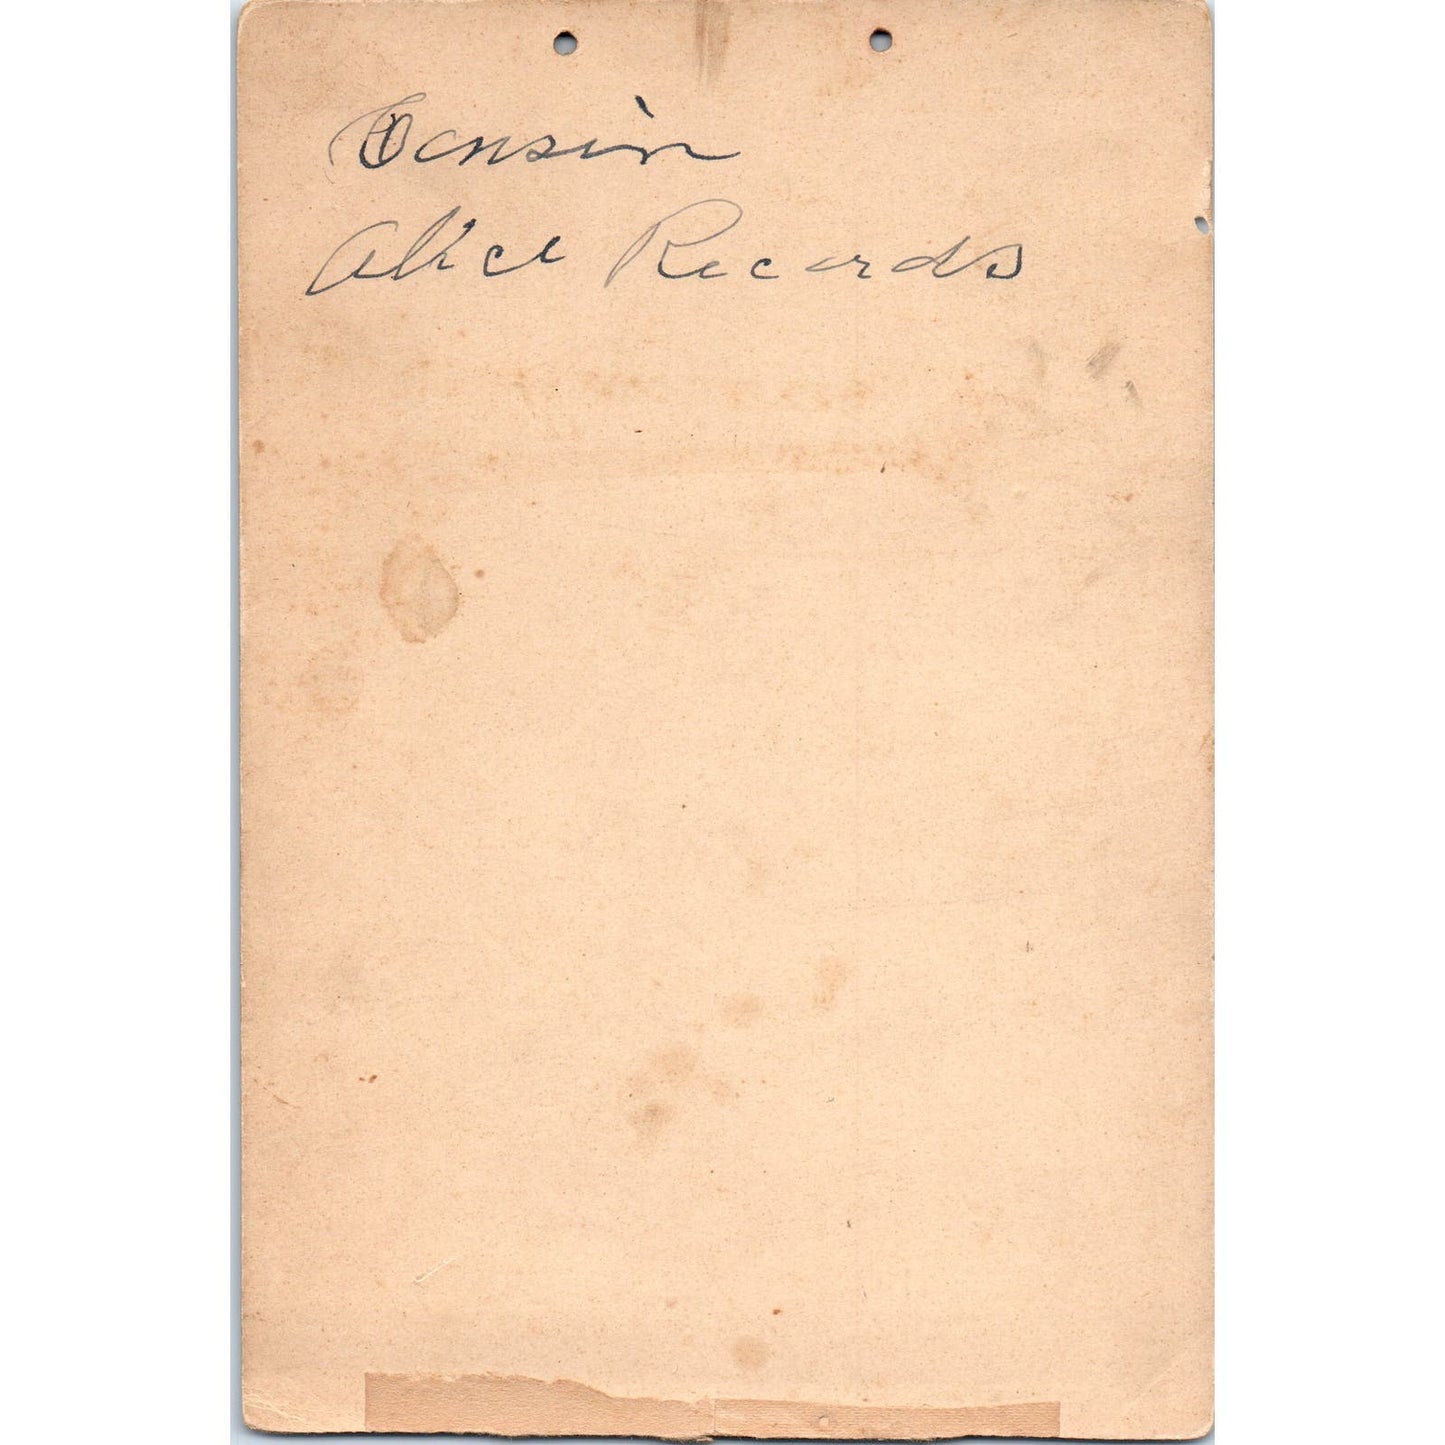 Cousin
Alice Records